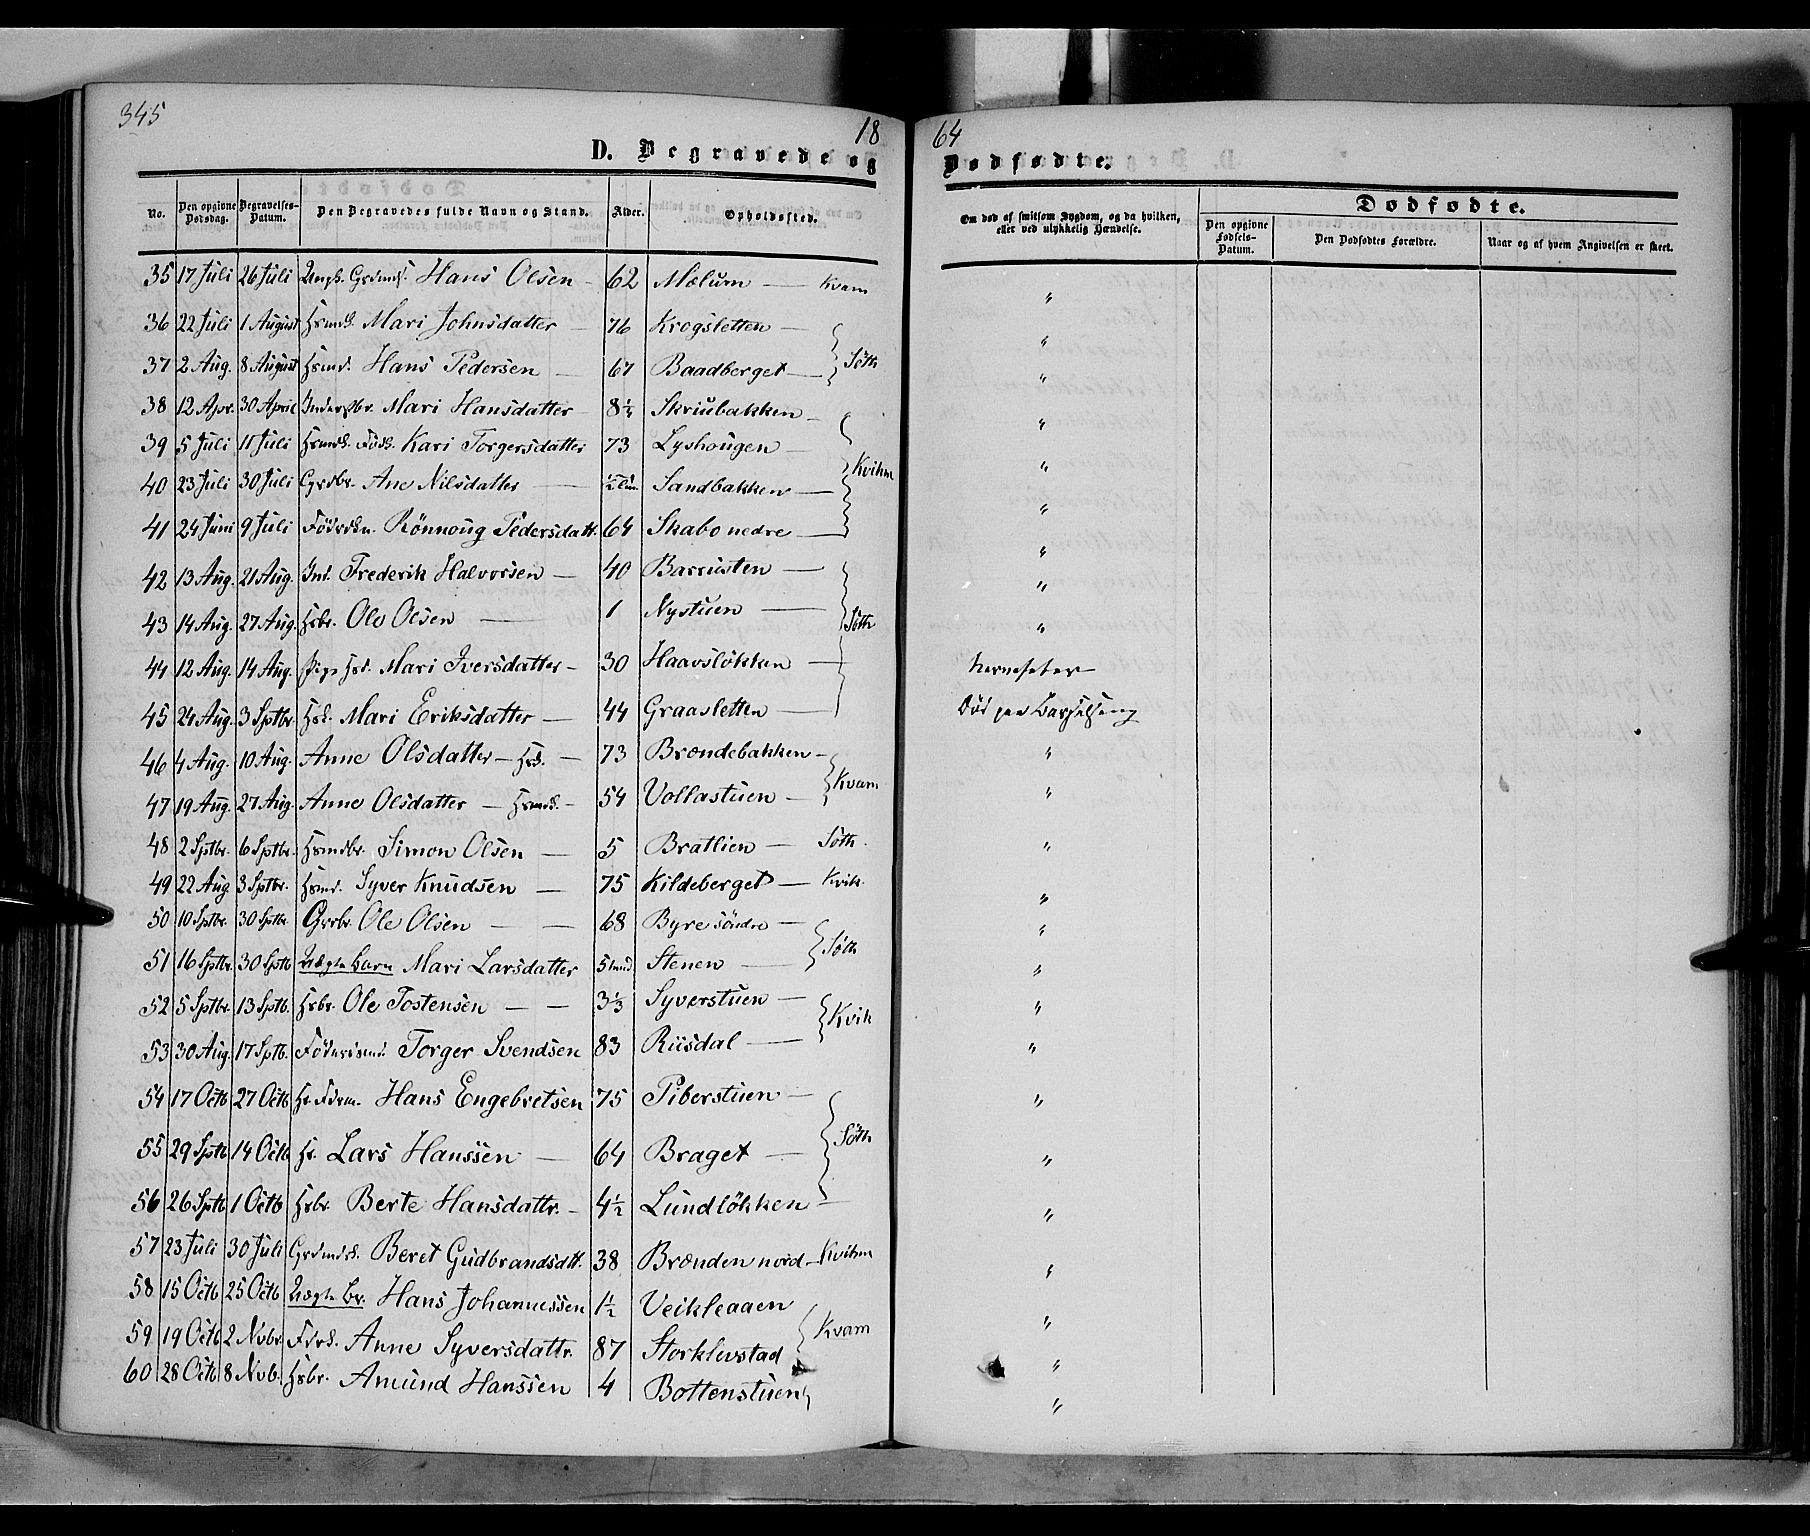 345
18 64
D. Begravede og Dødfødte.
No. Den opgivne Dødsdag. Begravelses-Datum. Den Begravedes fulde Navn og Stand. Alder. Opholdssted. Om død af smitsom Sygdom, og da hvilken, eller ved ulykkelig Hændelse. Dødfødte.
Den opgivne Fødsels-Datum. Den Dødfødtes Forældre. Naar og af hvem Angivelsen er skeet.
35 17 Juli 26 Juli Hans Olsen 62 Mælum Kvam "
36 22 Juli 1 August Mari Johnsdatter 76 Krogsletten "
37 2 Aug. 8 August Hsmd. Hans Pedersen 67 Baadberget Söth "
38 12 Apr. 30 April Mari Hansdatter 8½ Skriubakken "
39 5 Juli 11 Juli Kari Torgersdatter 73 Lyshougen "
40 23 Juli 30 Juli Grdbr. Ane Nilsdatter Sandbakken Kvihm "
41 24 Juni 9 Juli Rönnoug Pedersdatt. 64 Skabo nedre "
42 13 Aug. 21 Aug. Ind. Frederik Halvorsen 40 Barrusten "
43 14 Aug. 27 Aug. Hsbr. Ole Olsen 1 Nystuen Söth "
44 12 Aug. 14 Aug. Mari Iversdatter 30 Haavsløkken
45 24 Aug. 3 Sptbr. Mari Eriksdatter 44 Graasletten Död paa Barselseng
46 4 Aug. 10 Aug. Anne Olsdatter 73 Brændebakken "
47 19 Aug. 27 Aug. Anne Olsdatter 54 Vollastuen Kvam "
48 2 Sptbr. 6 Sptbr. Hsmdbr. Simon Olsen 5 Bratlien Söth. "
49 22 Aug 3 Sptbr. Hsmd. Syver Knudsen 75 Kildeberget Kvik. "
50 10 Sptbr. 30 Sptbr Ole Olsen 68 Byre söndre "
51 16 Sptbr. 30 Sptb Uægte Barn Mari Larsdatter 5 Stenen Söth "
52 5 Sptbr. 13 Sptb. Hsbr. Ole Tostensen 3⅓ Syverstuen "
53 30 Aug. 17 Sptb. Torger Svendsen 83 Riisdal Kvik "
54 17 Octb 27 Octb Hans Engebretsen 75 Piberstuen "
55 29 Sptb 14 Octb Lars Hanssen 64 Braget Söth "
56 26 Sptb 1 Octb Hsbr. Berte Hansdattr. 4½ Lundlökken "
57 23 Juli 30 Juli Beret Gudbrandsdtt. 38 Brænden nord Kvihm "
58 15 Octb 25 Octb Uægte Br. Hans Johannessen 1½ Veikleaaen "
59 19 Octb 2 Nvbr. Anne Syversdattr. 87 Storklevstad Kvam "
60 28 Octb 8 Nvb. Hsbr. Amund Hanssen 4 Bottenstuen "